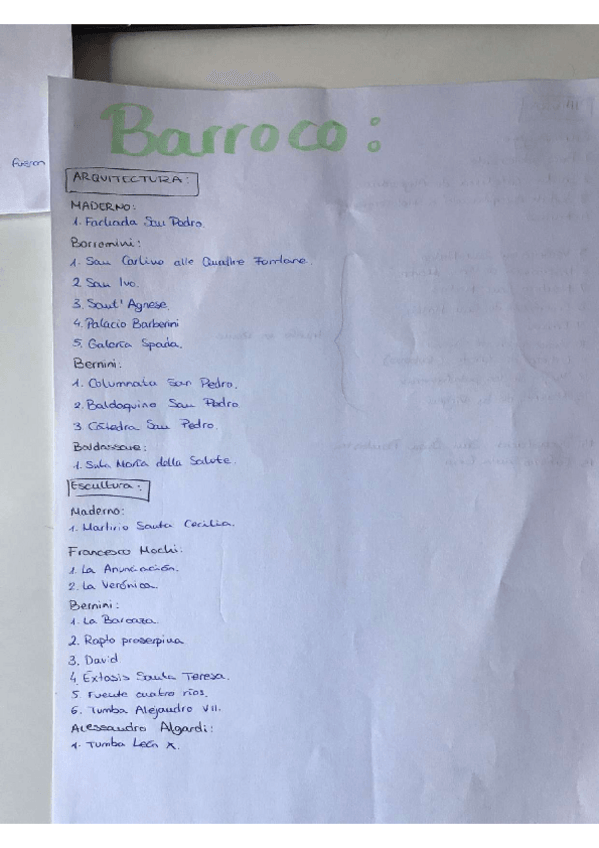 Barroco:
fueron
ARQUITECTURA:
MADERNO:
1. Fachada San Pedro.
Borromini:
1. San Carlino alle Quattre Fontane.
2 San Ivo.
3. Sant' Agnese.
4. Palacio Barberini
5. Galería Spada.
Bernini:
1. Columnata San Pedro.
2. Baldaquino San Pedro
3 Cátedra San Pedro.
Baldassare:
1. Sta María della Salute.
Escultura:
Maderno:
1. Martirio Santa Cecilia.
Francesco Mochi:
1. La Anunciación.
2. La Verónica.
Bernini:
1. La Barcaza.
2. Rapto proserpina
3. David
4 Éxtasis Santa Teresa.
5. Fuente cuatro ríos.
6. Tumba Alejandro VII.
Alessandro Algardi:
1. Tumba León X.